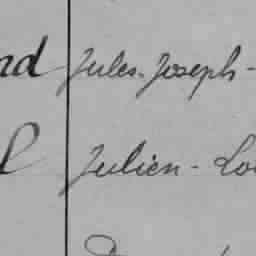 nd Jules-Joseph-
l Julien-Lou